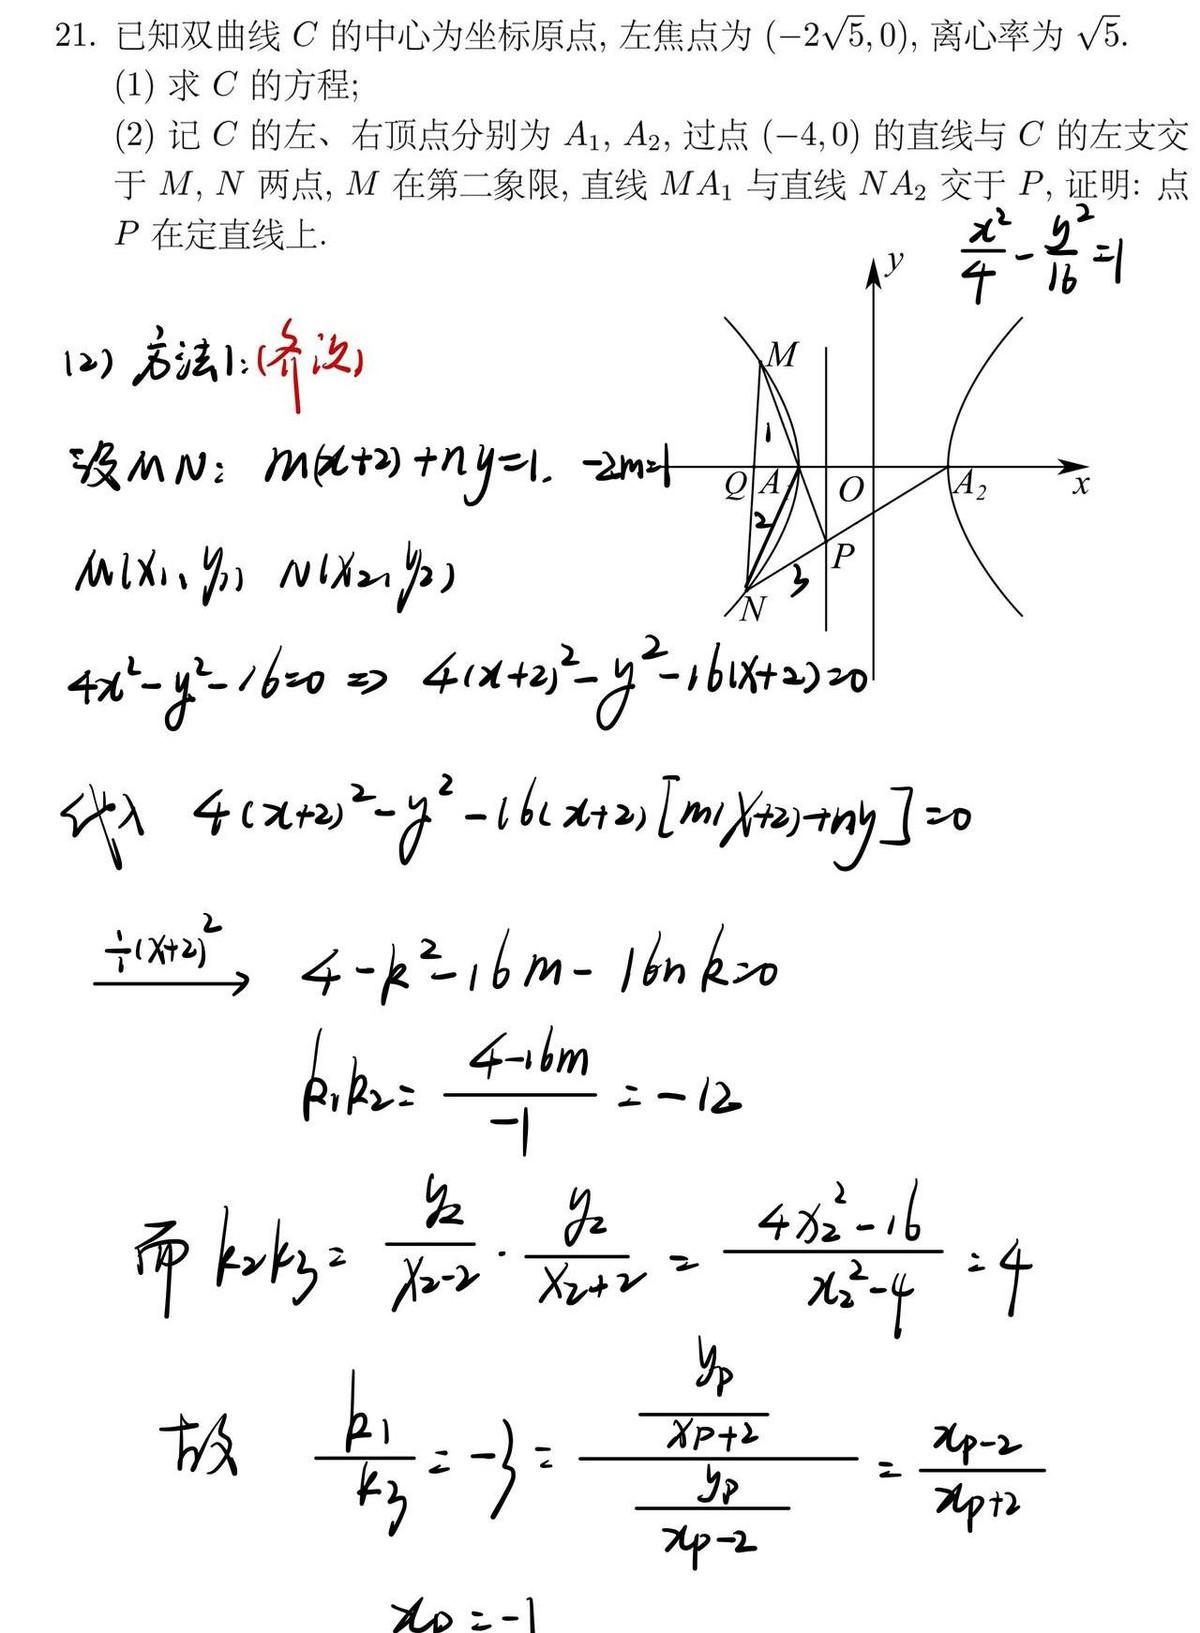 21. 已知双曲线 C 的中心为坐标原点, 左焦点为 (−2√5, 0), 离心率为 √5.
(1) 求 C 的方程;
(2) 记 C 的左、右顶点分别为 A₁, A₂, 过点 (−4, 0) 的直线与 C 的左支交
于 M, N 两点, M 在第二象限, 直线 MA₁ 与直线 NA₂ 交于 P, 证明: 点
P 在定直线上.
x²/4 - y²/16 = 1
y
M
1
Q A₁ O A₂ x
2
P
3
N
(2) 方法1: (齐次)
设MN: m(x+2)+ny=1. -2m=1
M(x₁, y₁) N(x₂, y₂)
4x²-y²-16=0 => 4(x+2)²-y²-16(x+2)=0
代入 4(x+2)²-y²-16(x+2)[m(x+2)+ny]=0
÷(x+2)² → 4-k²-16m-16nk=0
k₁k₂= (4-16m)/(-1) = -12
而 k₂k₃= y₂/(x₂-2) · y₂/(x₂+2) = (4x₂²-16)/(x₂²-4) = 4
故 k₁/k₃ = -3 = (yₚ/(xₚ+2))/(yₚ/(xₚ-2)) = (xₚ-2)/(xₚ+2)
xₚ=-1